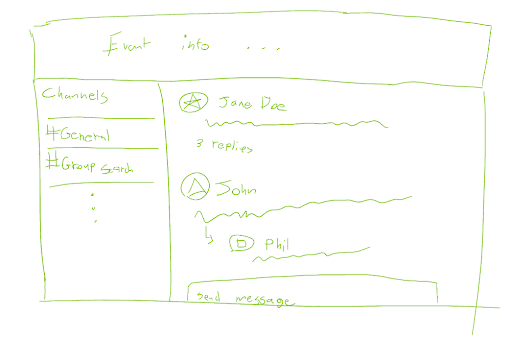 Event info ...
Channels
#General
#Group search
Jane Doe
3 replies
John
Phil
Send message